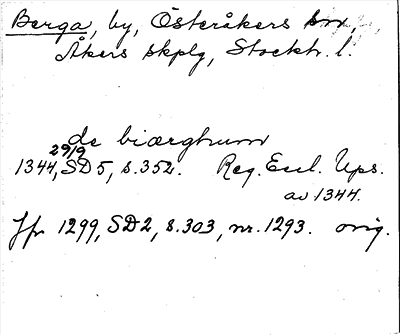 Berga, by, Österåkers sn,
Åkers skplg, Stockh. l.
de biærghum
29/9
1344, SD5, s.352. Reg. Eccl. Ups.
av 1344.
Jfr 1299, SD2, s.303, nr. 1293. orig.